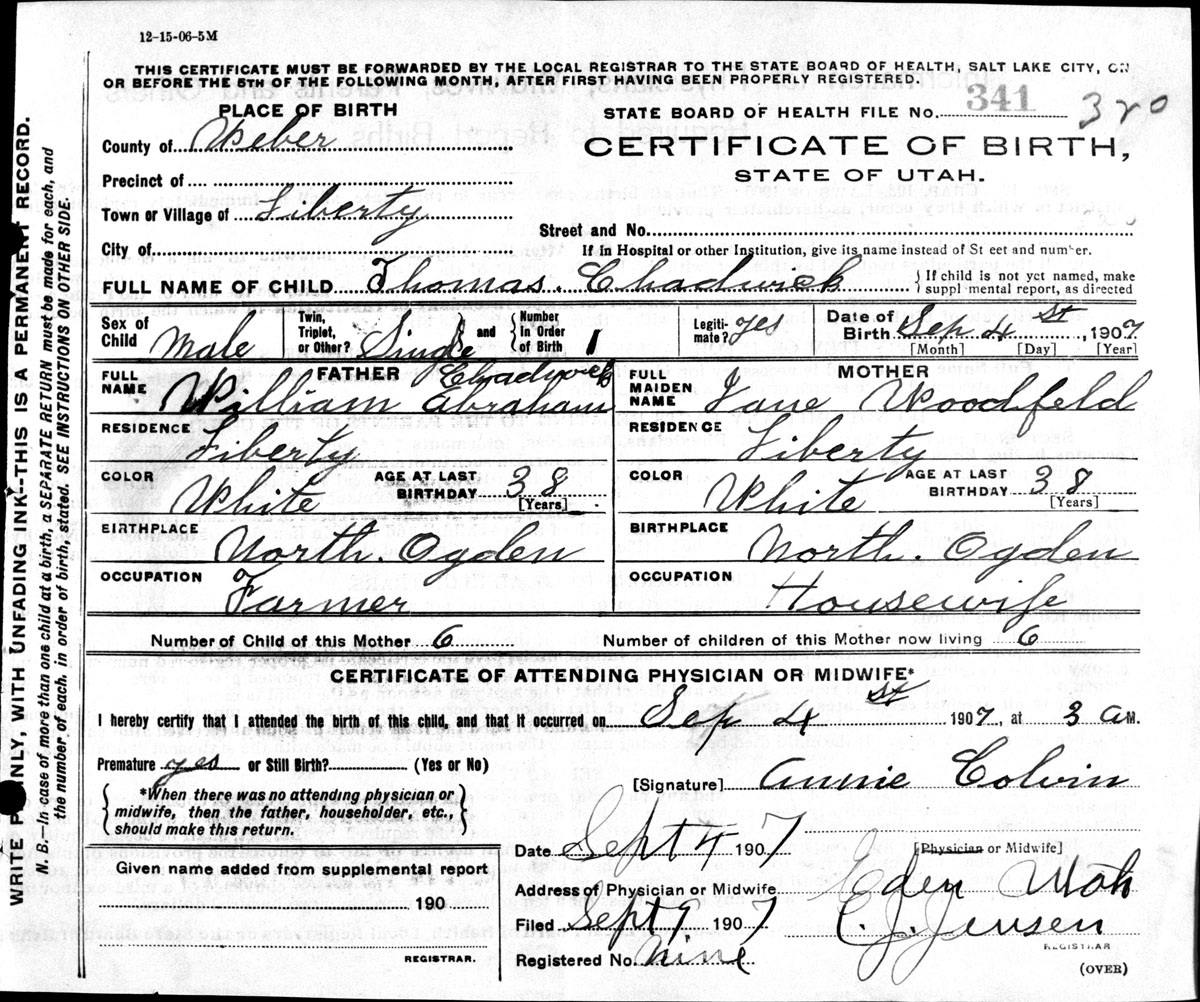 12-15-06-5M
THIS CERTIFICATE MUST BE FORWARDED BY THE LOCAL REGISTRAR TO THE STATE BOARD OF HEALTH, SALT LAKE CITY, ON
OR BEFORE THE 5TH OF THE FOLLOWING MONTH, AFTER FIRST HAVING BEEN PROPERLY REGISTERED.
WRITE PLAINLY, WITH UNFADING INK--THIS IS A PERMANENT RECORD.
N. B.—In case of more than one child at a birth, a SEPARATE RETURN must be made for each, and
the number of each, in order of birth, stated. SEE INSTRUCTIONS ON OTHER SIDE.
PLACE OF BIRTH
STATE BOARD OF HEALTH FILE NO. 341 320
County of Weber
CERTIFICATE OF BIRTH,
STATE OF UTAH.
Precinct of
Town or Village of Liberty
Street and No.
City of
If in Hospital or other Institution, give its name instead of St eet and number.
FULL NAME OF CHILD Thomas. Chadwick { If child is not yet named, make
suppl mental report, as directed
Sex of Child Male
Twin, Triplet, or Other? Single } and { Number in Order of Birth 1
Legiti-mate? yes
Date of Birth Sep 4 st, 1907
[Month] [Day] [Year]
FATHER
FULL NAME William Abraham Chadwick
RESIDENCE Liberty
COLOR White AGE AT LAST BIRTHDAY 38 [Years]
BIRTHPLACE North. Ogden
OCCUPATION Farmer
MOTHER
FULL MAIDEN NAME Jane Woodfeld
RESIDENCE Liberty
COLOR White AGE AT LAST BIRTHDAY 38 [Years]
BIRTHPLACE North. Ogden
OCCUPATION Housewife
Number of Child of this Mother 6 Number of children of this Mother now living 6
CERTIFICATE OF ATTENDING PHYSICIAN OR MIDWIFE*
I hereby certify that I attended the birth of this child, and that it occurred on Sep 4 st 1907, at 3 AM.
Premature yes or Still Birth? (Yes or No)
[Signature] Annie Colvin
{ *When there was no attending physician or
midwife, then the father, householder, etc.,
should make this return. }
Date Sept 4 1907 [Physician or Midwife]
Given name added from supplemental report
190
REGISTRAR.
Address of Physician or Midwife Eden Utah
Filed Sept 9 1907 C. J. Jensen
REGISTRAR
Registered No. nine
(OVER)